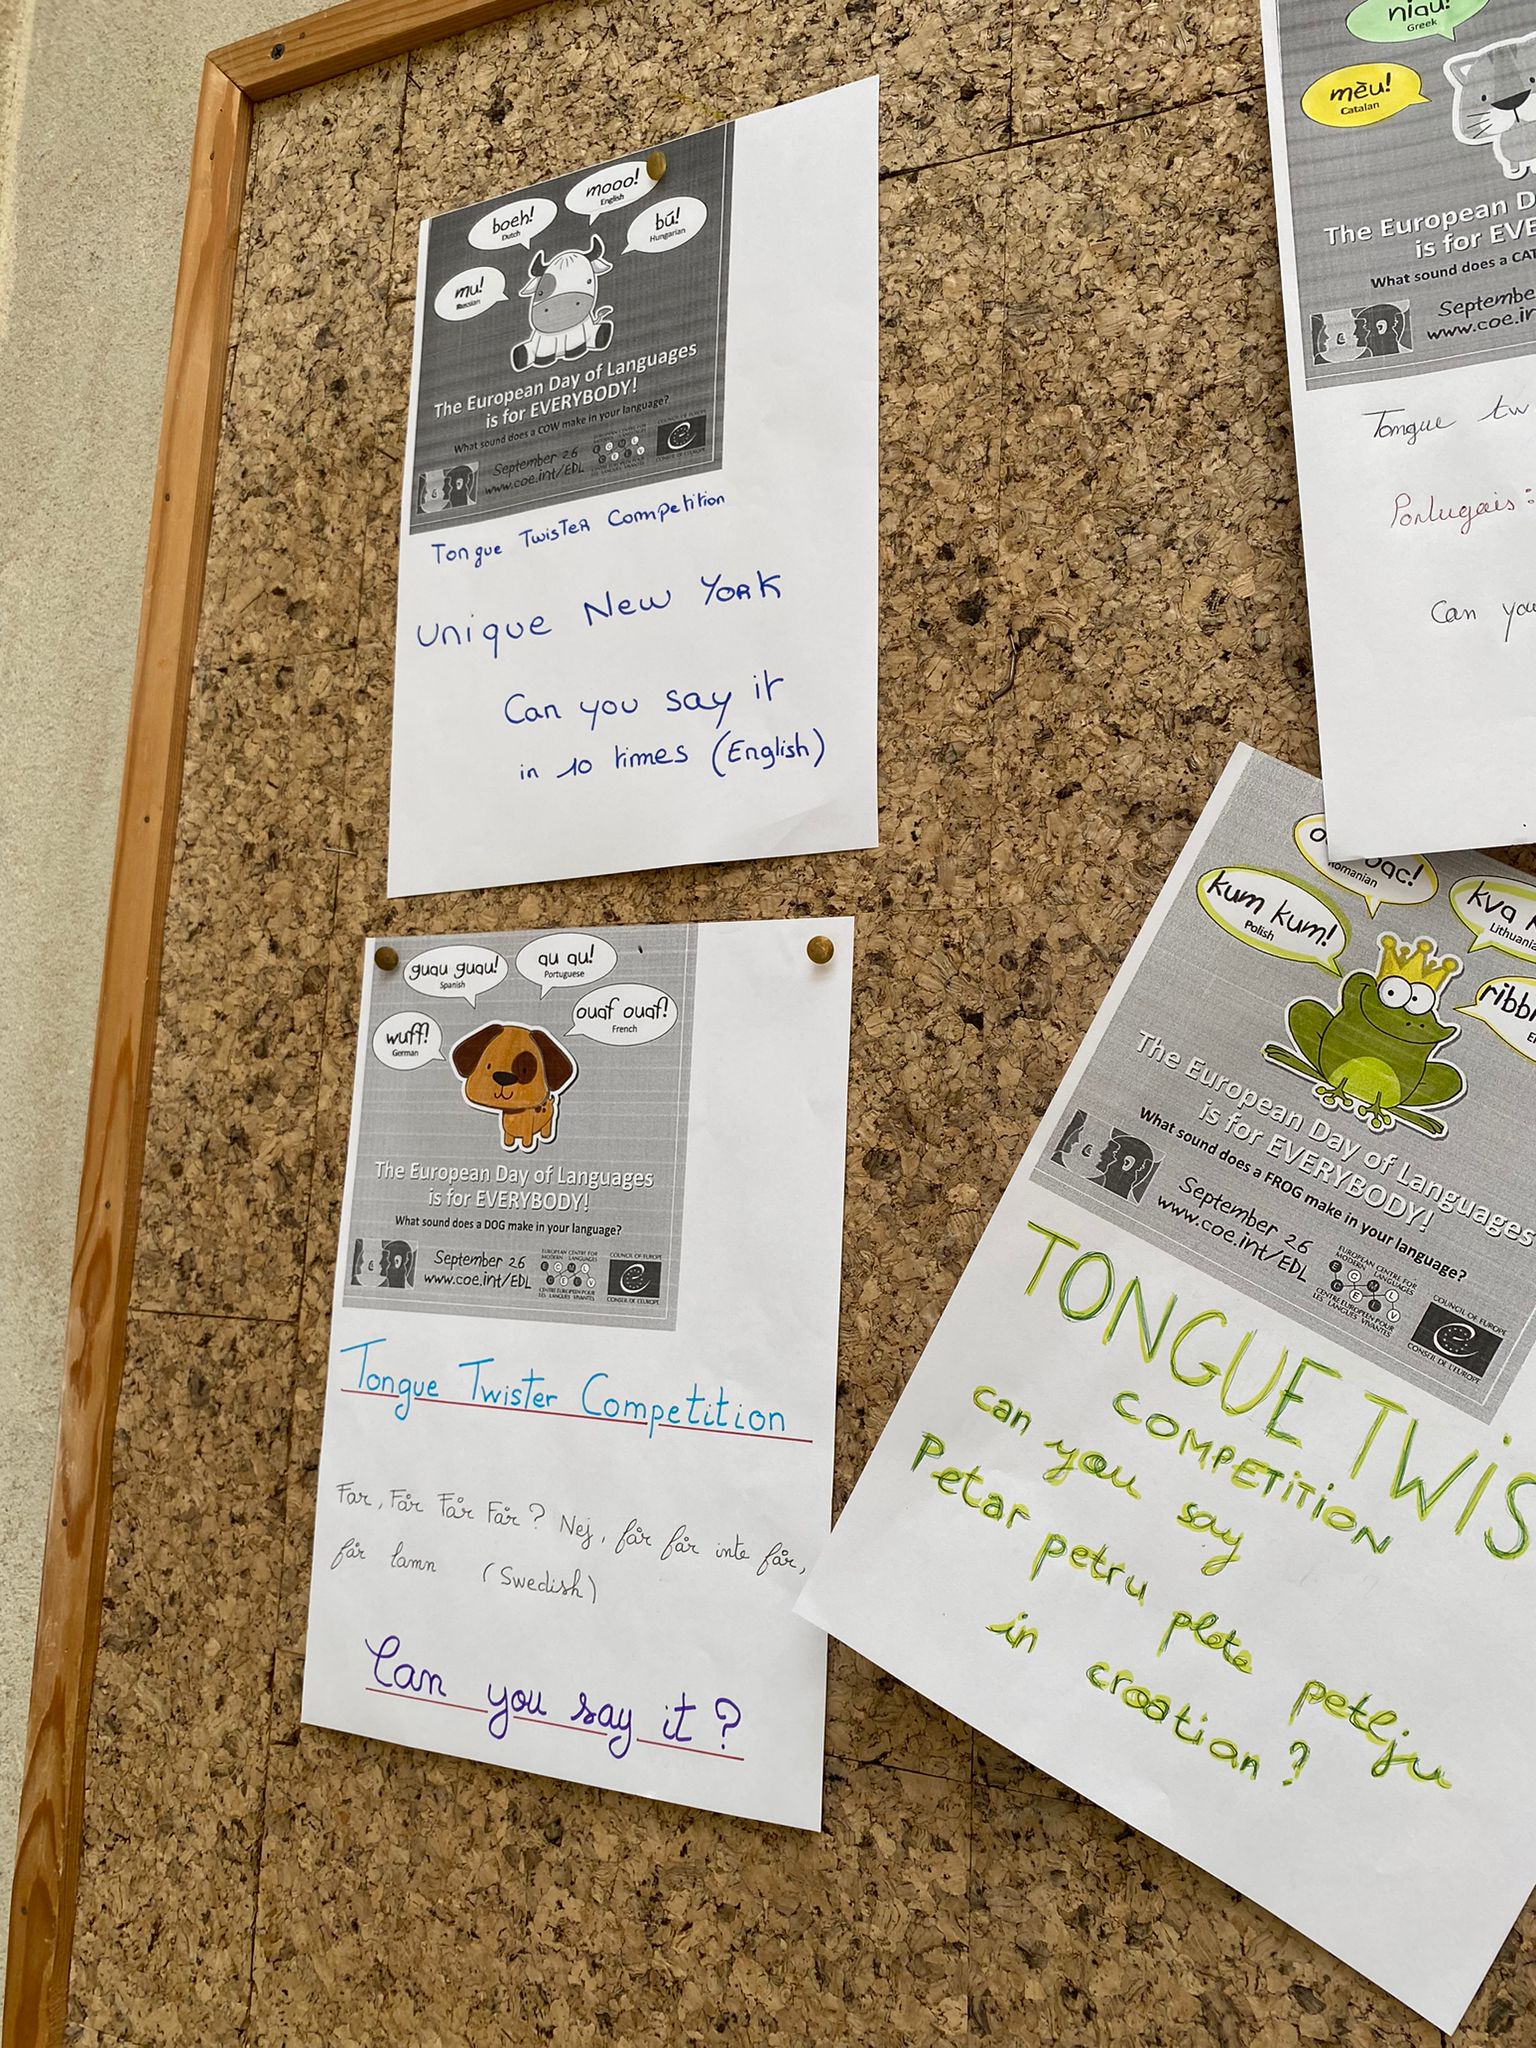 mooo!
English
boeh!
Dutch
bú!
Hungarian
mu!
Russian
The European Day of Languages
is for EVERYBODY!
What sound does a COW make in your language?
September 26
www.coe.int/EDL
EUROPEAN CENTRE FOR
MODERN LANGUAGES
ECML
CELV
CENTRE EUROPEEN POUR
LES LANGUES VIVANTES
COUNCIL OF EUROPE
CONSEIL DE L'EUROPE
Tongue Twister Competition
Unique New York
Can you say it
in 10 times (English)
niau!
Greek
mèu!
Catalan
The European D
is for EVE
What sound does a CAT
Septembe
www.coe.in
Tongue tw
Portugais:
Can you
guau guau!
Spanish
au au!
Portuguese
ouaf ouaf!
French
wuff!
German
The European Day of Languages
is for EVERYBODY!
What sound does a DOG make in your language?
September 26
www.coe.int/EDL
EUROPEAN CENTRE FOR
MODERN LANGUAGES
ECML
CELV
CENTRE EUROPEEN POUR
LES LANGUES VIVANTES
COUNCIL OF EUROPE
CONSEIL DE L'EUROPE
Tongue Twister Competition
Far, Får Får Får? Nej, får får inte får,
får lamn (Swedish)
Can you say it?
oac!
Romanian
kum kum!
Polish
kva
Lithuania
ribb
The European Day of Languages
is for EVERYBODY!
What sound does a FROG make in your language?
September 26
www.coe.int/EDL
EUROPEAN CENTRE FOR
MODERN LANGUAGES
ECML
CELV
CENTRE EUROPEEN POUR
LES LANGUES VIVANTES
COUNCIL OF EUROPE
CONSEIL DE L'EUROPE
TONGUE TWIS
COMPETITION
can you say
Petar petru plete petlju
in croatian?